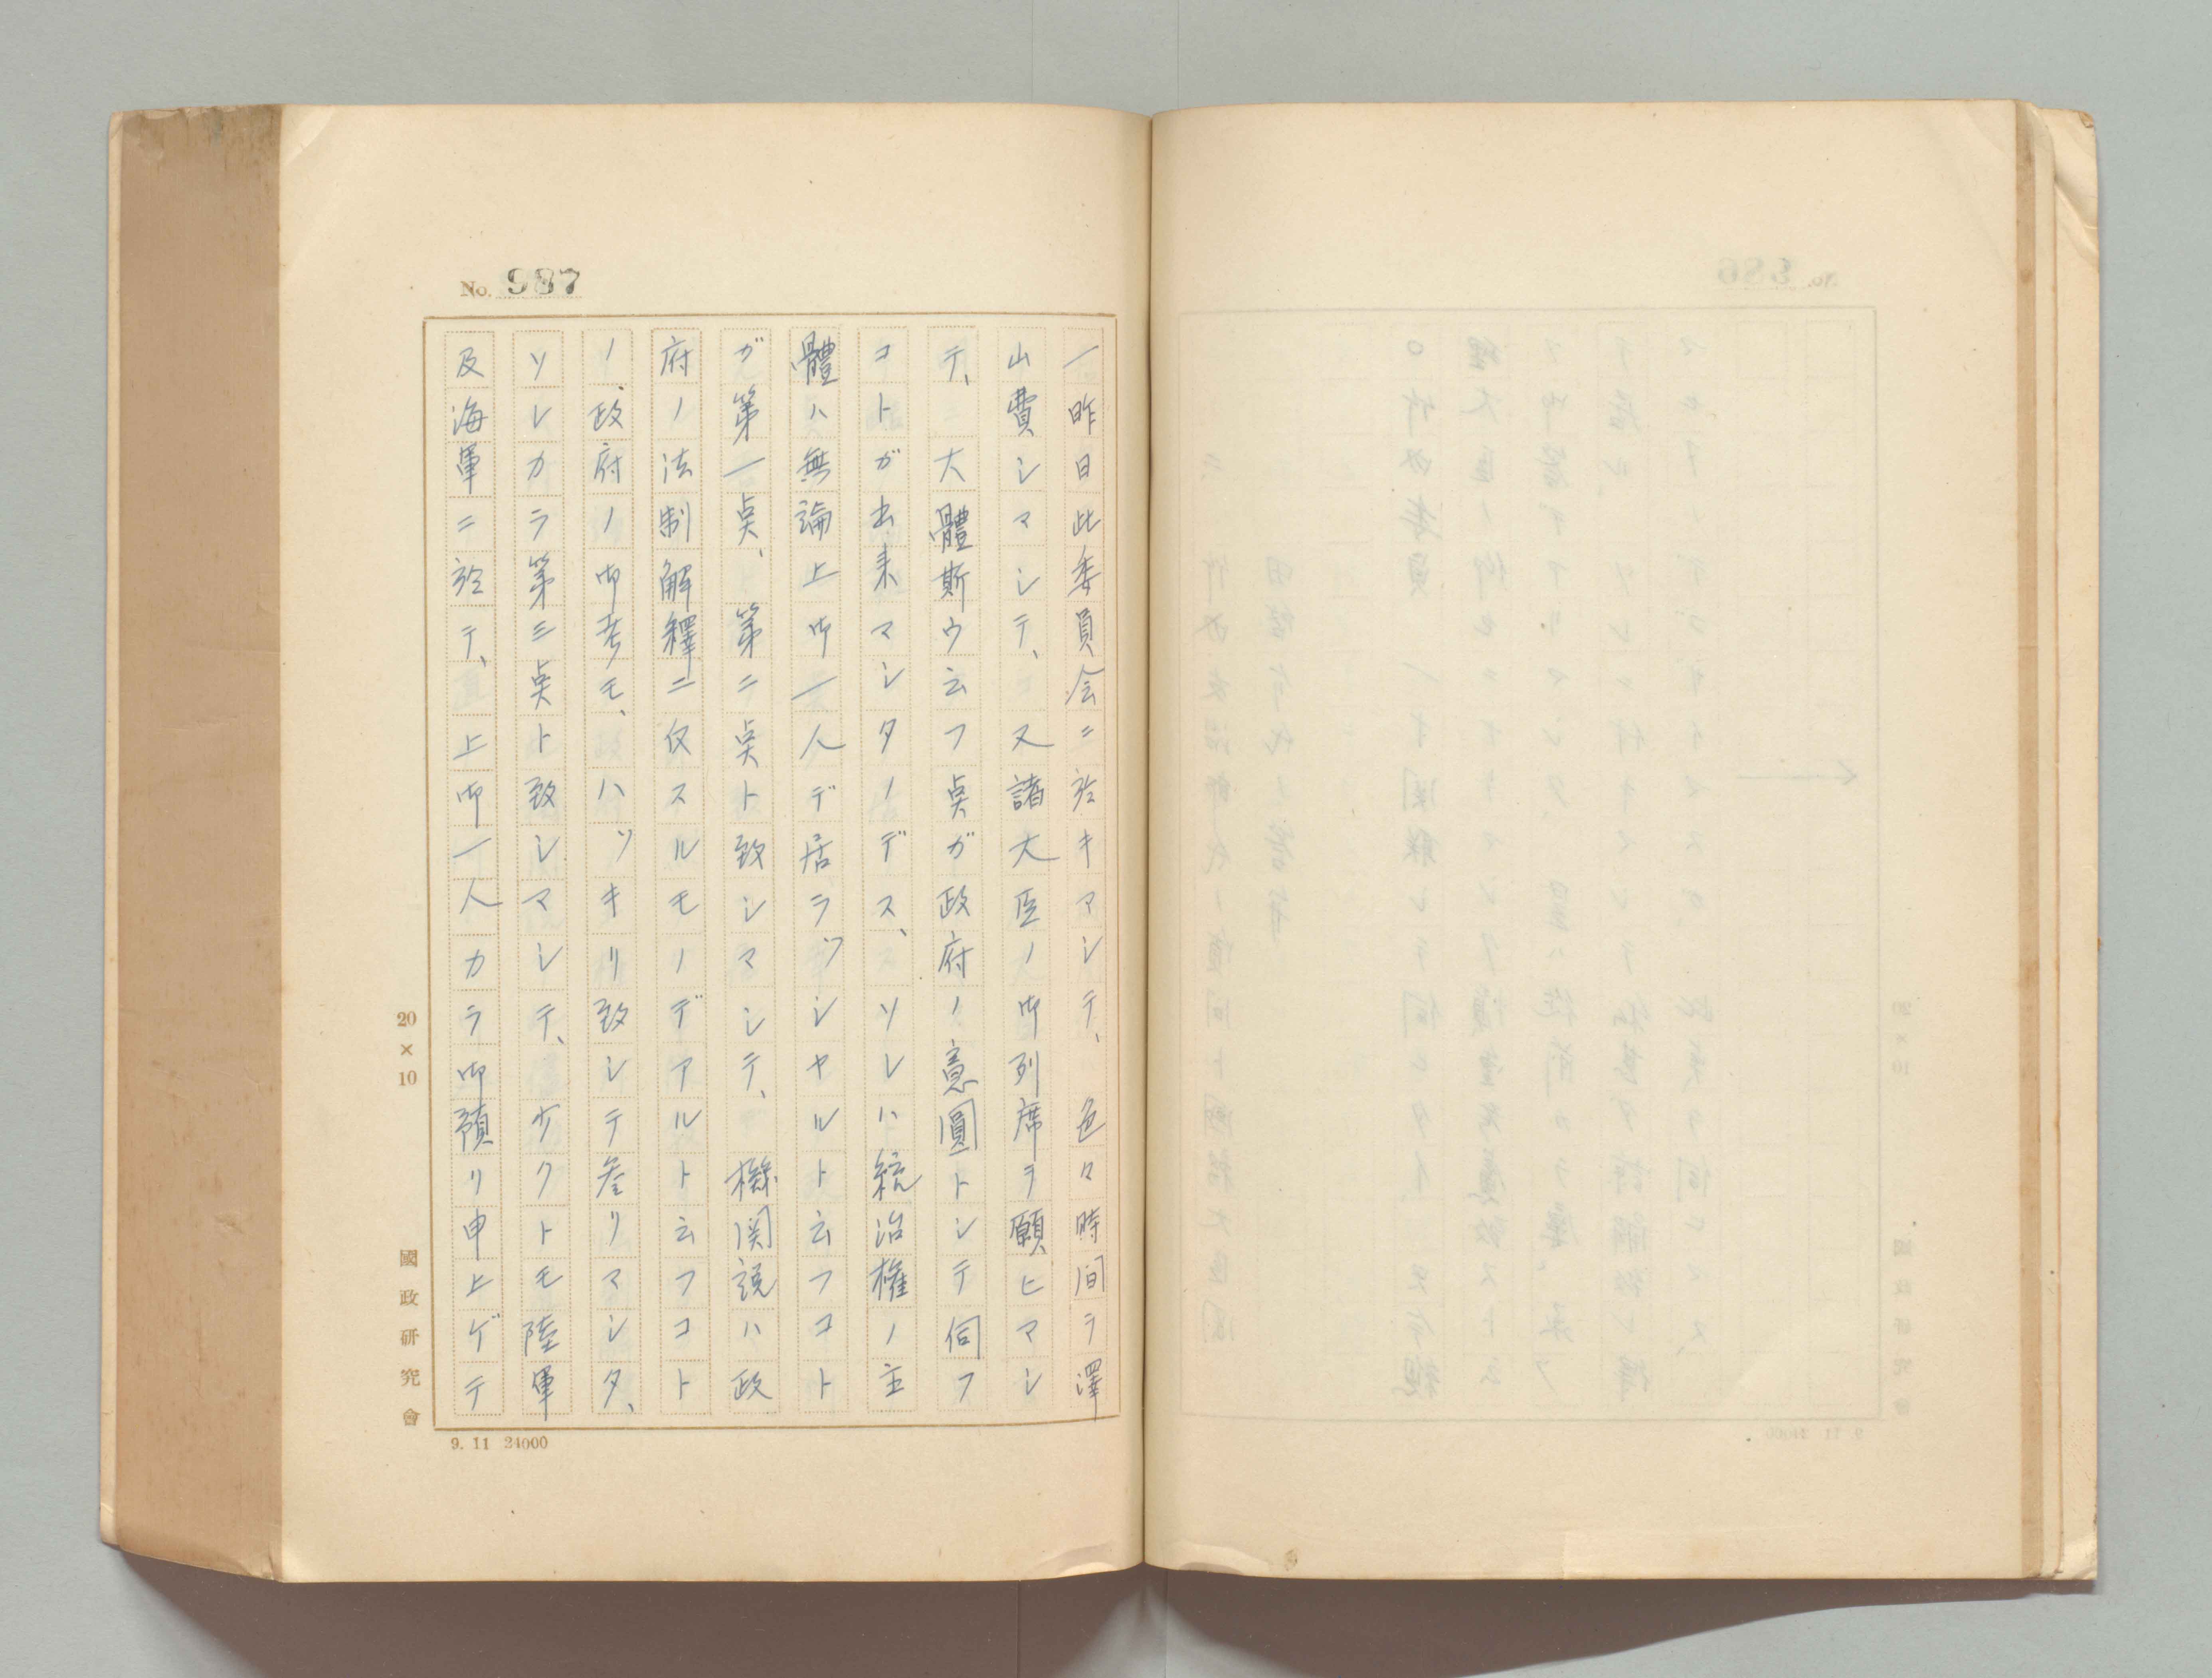 No. 987
一昨日此委員会ニ於キマシテ、色々時間ヲ澤
山費シマシテ、又諸大臣ノ御列席ヲ願ヒマシ
テ、大體斯ウ云フ点ガ政府ノ意圓トシテ伺フ
コトガ出来マシタノデス、ソレハ統治権ノ主
體ハ無論上御一人デ居ラツシヤルト云フコト
ガ第一点、第二点ト致シマシテ、機関説ハ政
府ノ法制解釋ニ仅スルモノデアルト云フコト
ノ政府ノ御考モ、ハツキリ致シテ参リマシタ、
ソレカラ第三点ト致シマシテ、少クトモ陸軍
及海軍ニ於テ、上御一人カラ御預リ申上ゲテ
20×10
國政研究會
9. 11 24000